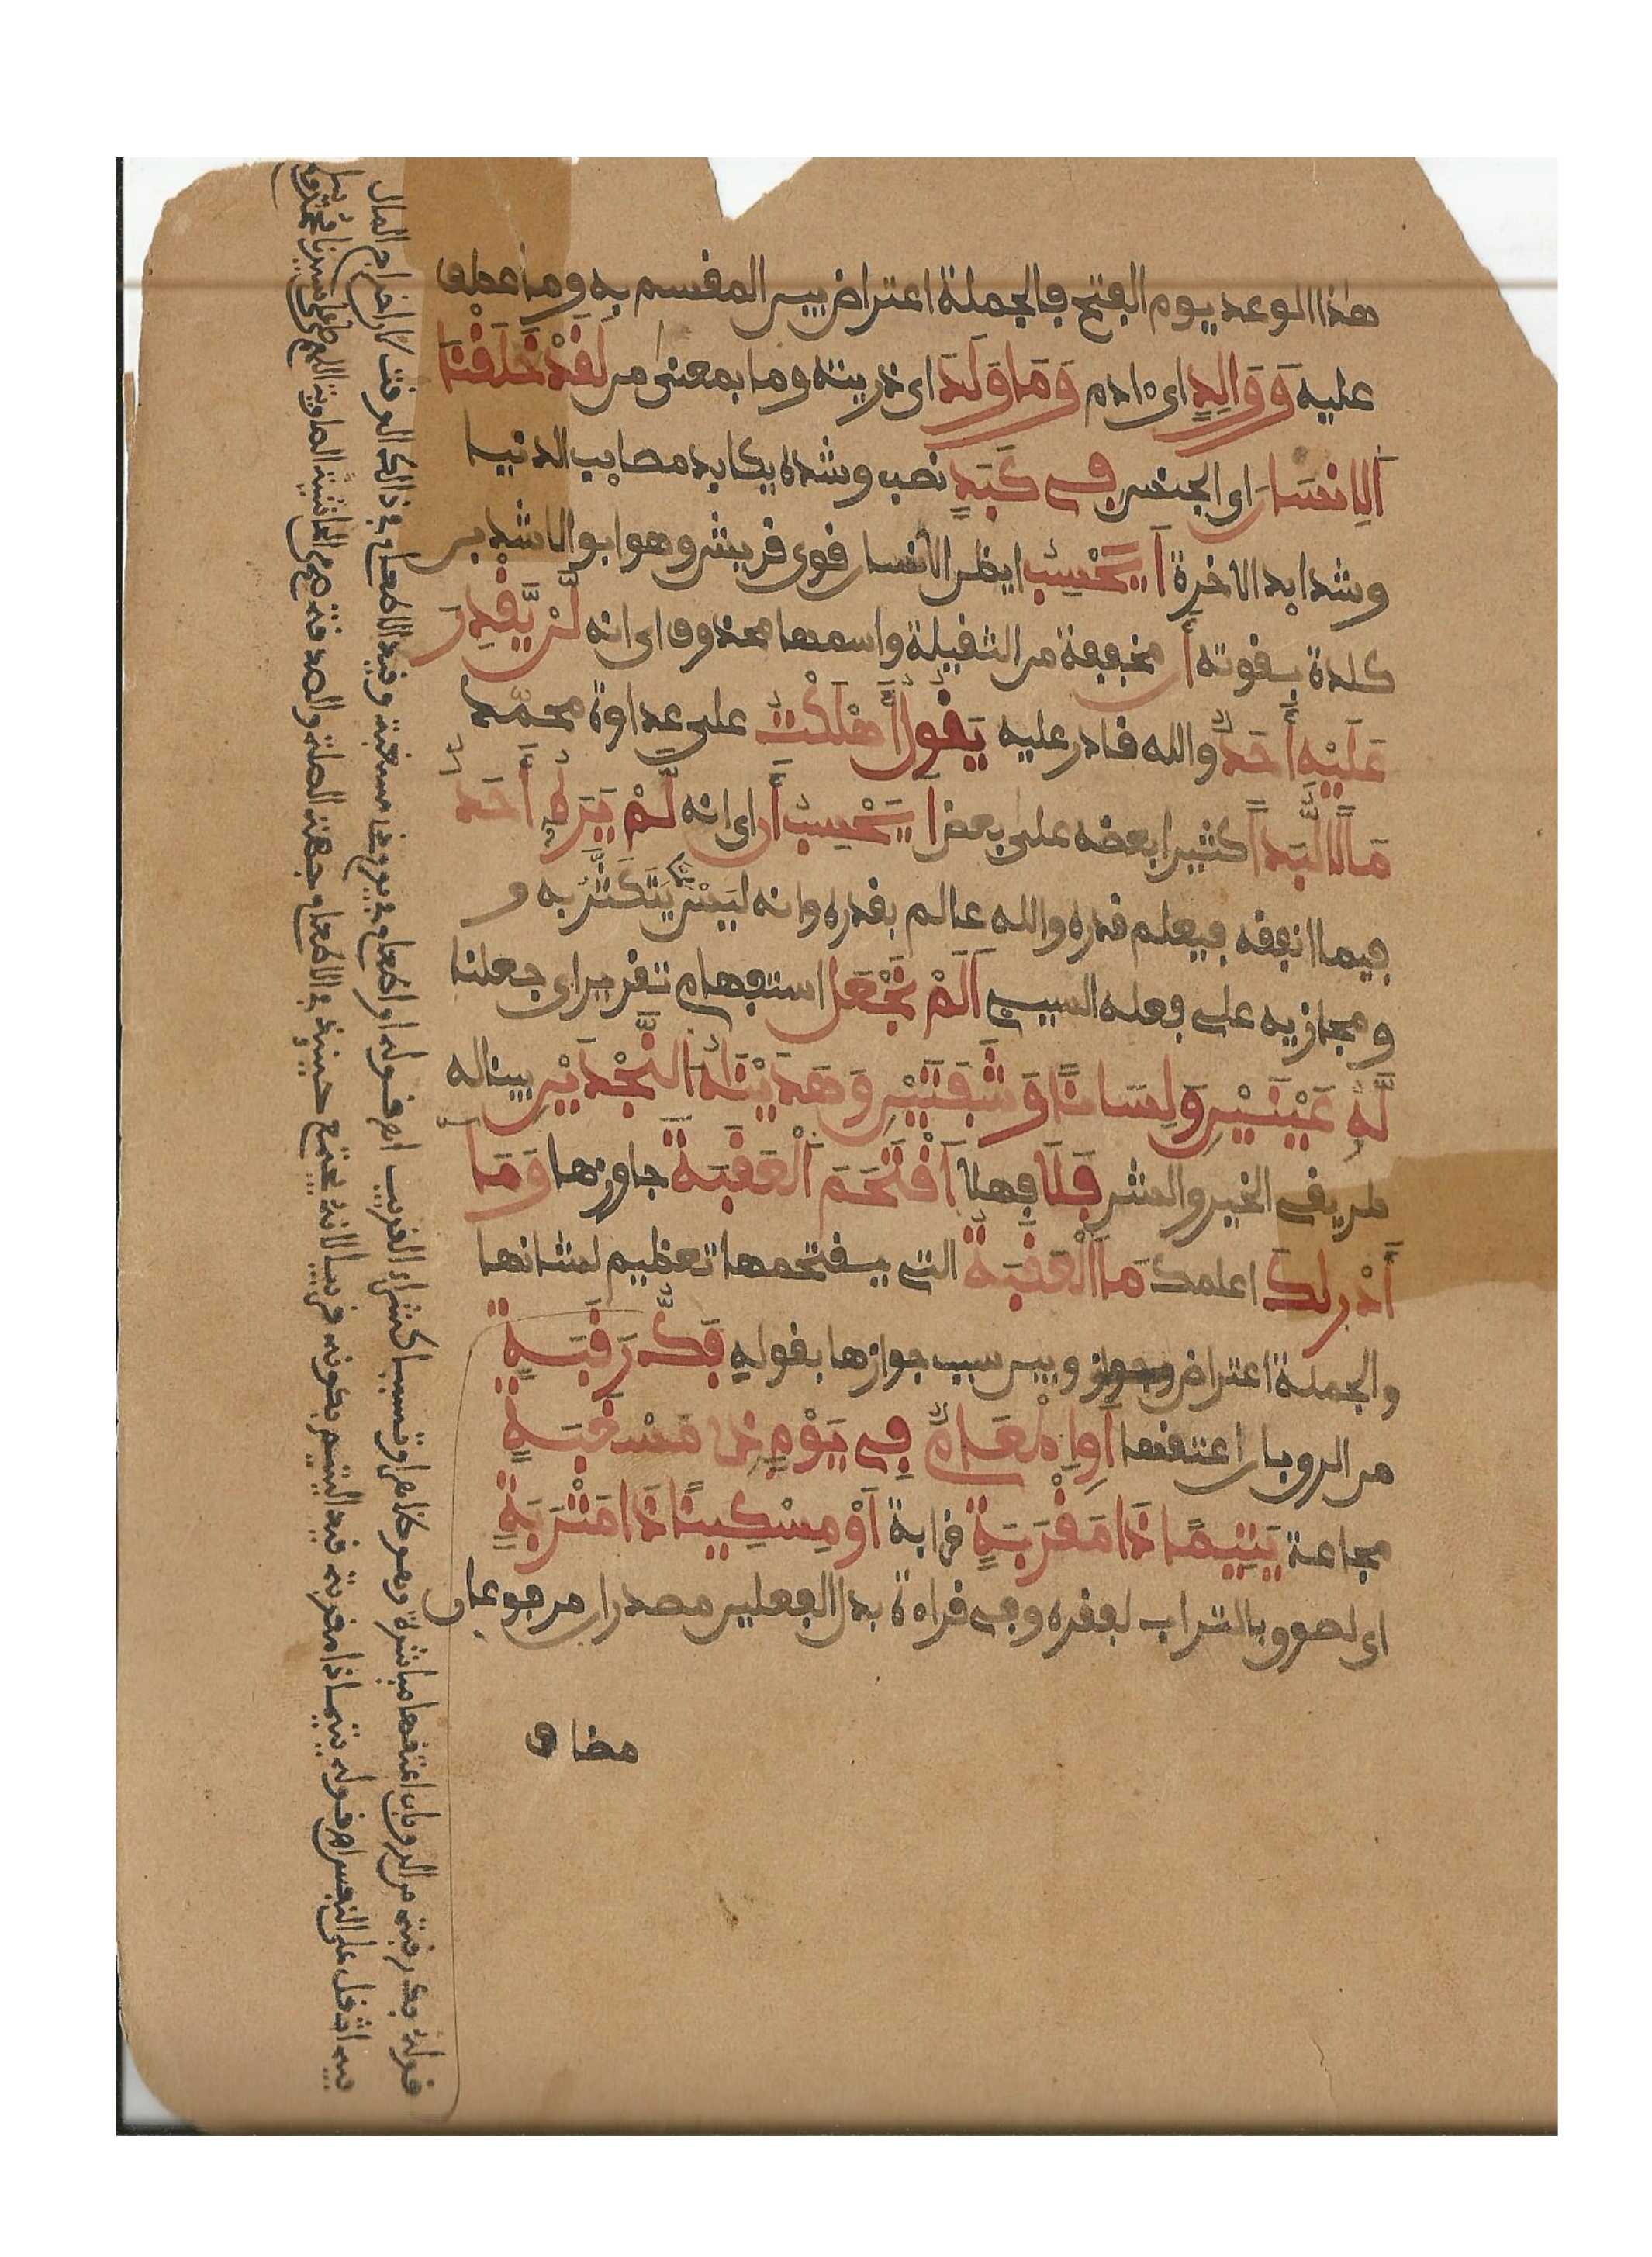 هذا الوعد يوم الفتح فالجملة اعتراض بين المقسم به وما عطف
عليه وَوَالِدٍ اى ءادم وَمَا وَلَدَ اى ذريته وما بمعنى من لَقَدْ خَلَقْنَا
اَلِانسَانَ اى الجنس فِى كَبَدٍ نصب وشدة يكابد مصايب الدنيا
وشدايد الاخرة اَيَحْسِبُ ايظن الانسان قوى قريش وهو ابو الاشدين
كلدة بقوته أَن مخففة من الثقيلة واسمها محذوف اى انه لَّنْ يَّقْدِرَ
عَلَيْهِ أَحَدٌ والله قادر عليه يَقُولُ أَهْلَكْتُ على عداوة محمّد
مَالًا لُّبَداً كثيرا بعضه على بعض اَيَحْسِبُ أَن اى انه لَّمْ يَرَهُ أَحَدٌ
فيما انفقه فيعلم قدره والله عالم بقدره وانه ليس مما يَتَكَثَّرُ به و
ومجازيه على فعله السيى اَلَمْ نَجْعَل استفهام تقرير اى جعلنا
لَّهُ عَيْنَيْنِ وَلِسَانًا وَشَفَتَيْنِ وَهَدَيْنَاهُ اَلنَّجْدَيْنِ بينا له
طريقى الخير والشر فَلَا فهلا اَقْتَحَمَ اَلْعَقَبَةَ جاوزها وَمَا
أَدْرىكَ اعلمك مَا اَلْعَقَبَةُ التى يقتحمها تعظيم لشانها
والجملة اعتراض وبين سبب جوازها بقوله فَكُّ رَقَبَةٍ
من الرق بان اعتقها اَوِ اِطْعَامٌ فِى يَوْمٍ ذِى مَسْغَبَةٍ
مجاعة يَتِيمًا ذَا مَقْرَبَةٍ قرابة اَوْ مِسْكِينًا ذَا مَتْرَبَةٍ
اى لصوق بالتراب لفقره وفى قراءة بدل الفعلين مصدران مرفوعان
مضاف
قوله فك رقبة من الرق بان اعتقها مباشرة وهو ظاهر او تسببا كشراء القريب اهـ قوله او اطعام فى يوم ذى مسغبة وقيد الاطعام فى ذلك الوقت لان اخراج المال
فيه اثقل على النفس اهـ قوله يتيما ذا مقربة قيد اليتيم بكونه قريبا لانه يجتمع حينيذ فى الاطعام جهتا الصلة والصدقة